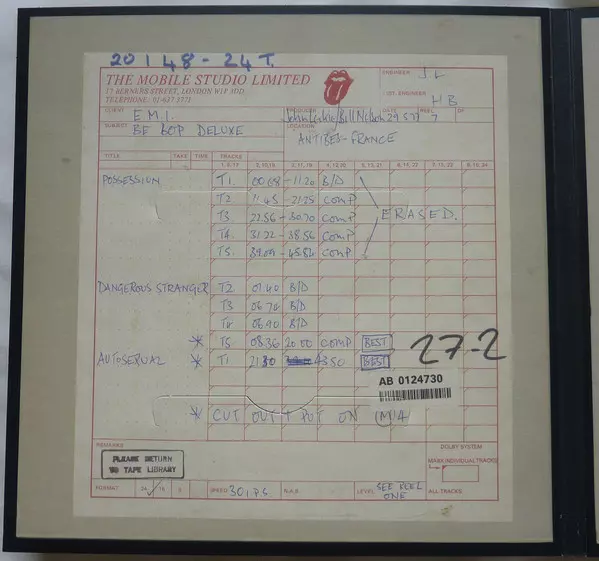 20148-24T.
THE MOBILE STUDIO LIMITED
17 BERNERS STREET, LONDON W1P 3DD.
TELEPHONE: 01-637 5771
ENGINEER J L
1ST. ENGINEER HB
CLIENT E.M.I. PRODUCER John Leckie/Bill Nelson DATE 29 5 77 REEL 7 OF
SUBJECT BE BOP DELUXE LOCATION ANTIBES-FRANCE
TITLE TAKE TIME TRACKS 1, 9, 17 2, 10, 18 3, 11, 19 4, 12, 20 5, 13, 21 6, 14, 22 7, 15, 23 8, 16, 24
POSSESSION T1. 00.68 - 11.20 B/D
T2 11.45 - 21.25 COMP
T3 22.56 - 30.70 COMP ERASED.
T4. 31.22 - 38.56 COMP
T5. 39.09 - 45.84 COMP
DANGEROUS STRANGER T2 01.40 B/D
T3 06.70 B/D
T4 06.90 B/D
* T5 08.36 20.00 COMP BEST
27-2
AUTOSEXUAL * T1 21.30 43.50 BEST
AB 0124730
* CUT OUT + PUT ON M4
REMARKS
PLEASE RETURN
TO TAPE LIBRARY
DOLBY SYSTEM
MARK INDIVIDUAL TRACKS
FORMAT 24 16 8 SPEED 30 i.p.s. N.A.B. LEVEL SEE REEL ONE ALL TRACKS